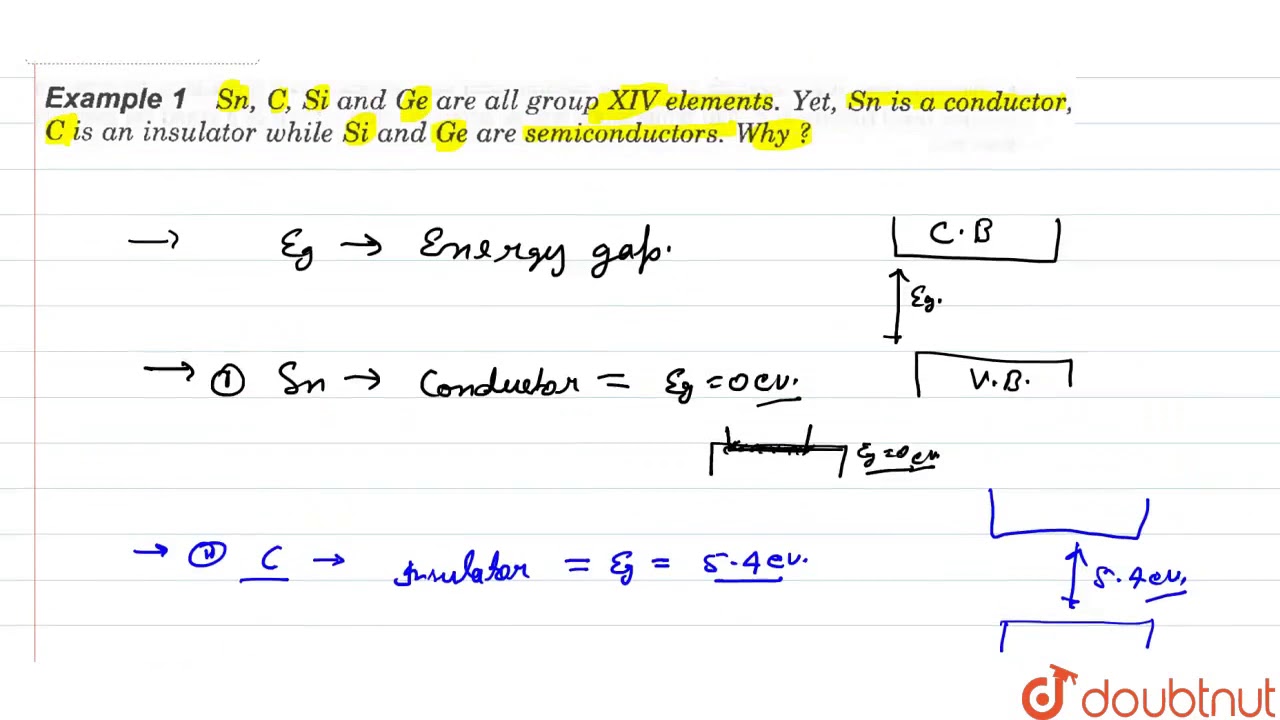 Example 1 Sn, C, Si and Ge are all group XIV elements. Yet, Sn is a conductor,
C is an insulator while Si and Ge are semiconductors. Why ?
C.B
→ Eg → Energy gap.
Eg.
→ ① Sn → Conductor = Eg = 0 ev.
V.B.
Eg = 0 ev
→ ② C → insulator = Eg = 5.4 ev.
5.4 ev.
doubtnut